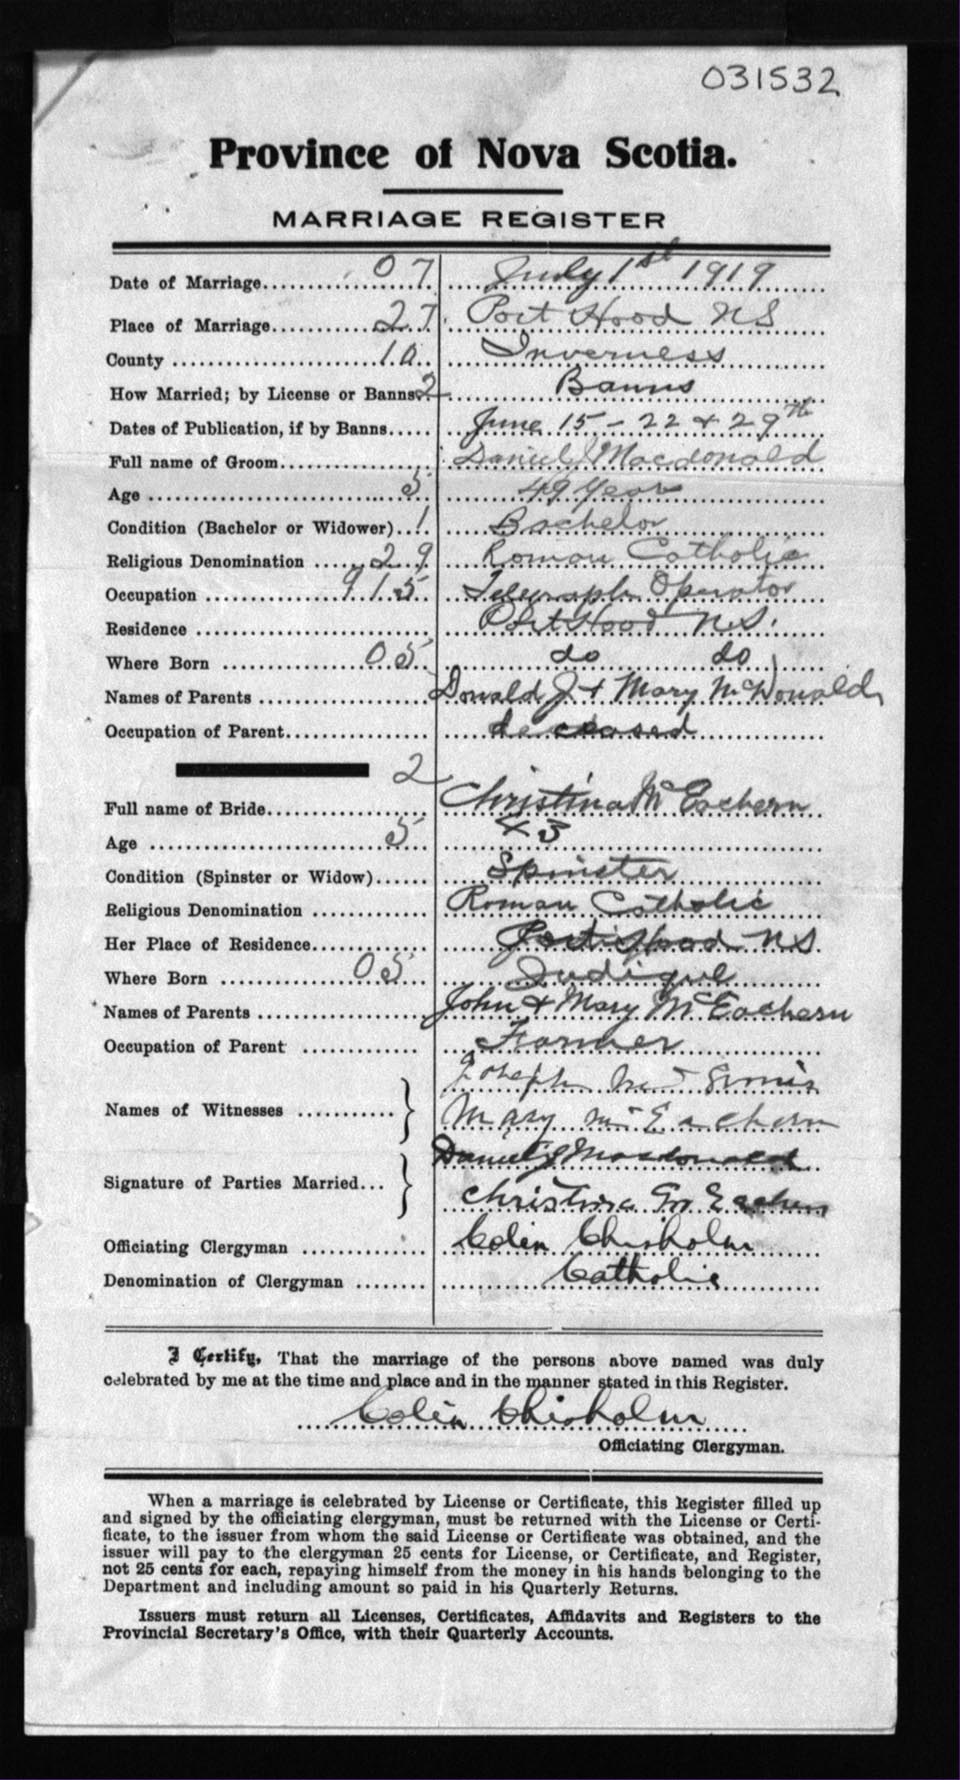 031532
Province of Nova Scotia.
MARRIAGE REGISTER
Date of Marriage 07 July 1st 1919
Place of Marriage 27 Port Hood NS
County 10 Inverness
How Married; by License or Banns 2 Banns
Dates of Publication, if by Banns June 15 - 22 & 29th
Full name of Groom Daniel J Macdonald
Age 5 49 Years
Condition (Bachelor or Widower) 1 Bachelor
Religious Denomination 29 Roman Catholic
Occupation 915 Telegraph Operator
Residence Port Hood N.S.
Where Born 05 do do
Names of Parents Donald J + Mary McDonald
Occupation of Parent deceased
2
Full name of Bride Christina McEachern
Age 5 43
Condition (Spinster or Widow) Spinster
Religious Denomination Roman Catholic
Her Place of Residence Port Hood NS
Where Born 05 Judique
Names of Parents John + Mary McEachern
Occupation of Parent Farmer
Joseph
Names of Witnesses Mary McEachern
Daniel J Macdonald
Signature of Parties Married... Christina McEachern
Officiating Clergyman Colin Chisholm
Denomination of Clergyman Catholic
I Certify, That the marriage of the persons above named was duly
celebrated by me at the time and place and in the manner stated in this Register.
Colin Chisholm
Officiating Clergyman.
When a marriage is celebrated by License or Certificate, this Register filled up
and signed by the officiating clergyman, must be returned with the License or Certi-
ficate, to the issuer from whom the said License or Certificate was obtained, and the
issuer will pay to the clergyman 25 cents for License, or Certificate, and Register,
not 25 cents for each, repaying himself from the money in his hands belonging to the
Department and including amount so paid in his Quarterly Returns.
Issuers must return all Licenses, Certificates, Affidavits and Registers to the
Provincial Secretary's Office, with their Quarterly Accounts.